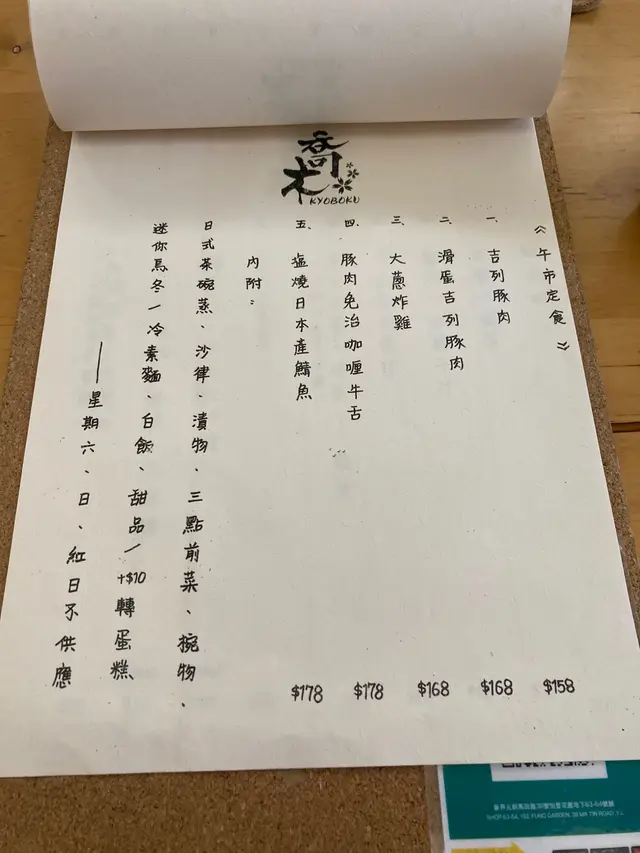 喬木
KYOBOKU
《午市定食》
一、吉列豚肉 $158
二、滑蛋吉列豚肉 $168
三、大蔥炸雞 $168
四、豚肉免治咖喱牛舌 $178
五、塩燒日本產鯖魚 $178
內附：
日式茶碗蒸、沙律、漬物、三點前菜、椀物、
迷你烏冬/冷素麵、白飯、甜品/+$10轉蛋糕
——星期六、日、紅日不供應
SHOP FUNG GARDEN, MA TIN ROAD